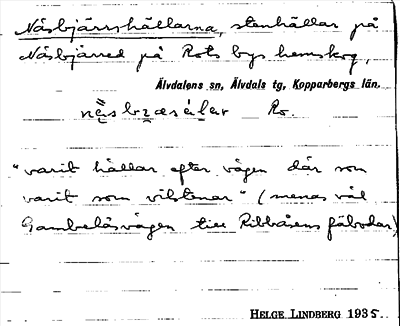 Näsbjärrshällarna, stenhällar på
Näsbjärred på Rots bys hemskog,
Älvdalens sn, Älvdals tg, Kopparbergs län.
Ro.
"varit hällar efter vägen där som
varit som vilstenar" (menas väl
Gambelåsvägen till Ribbåsens fäbodar)
HELGE LINDBERG 1935.